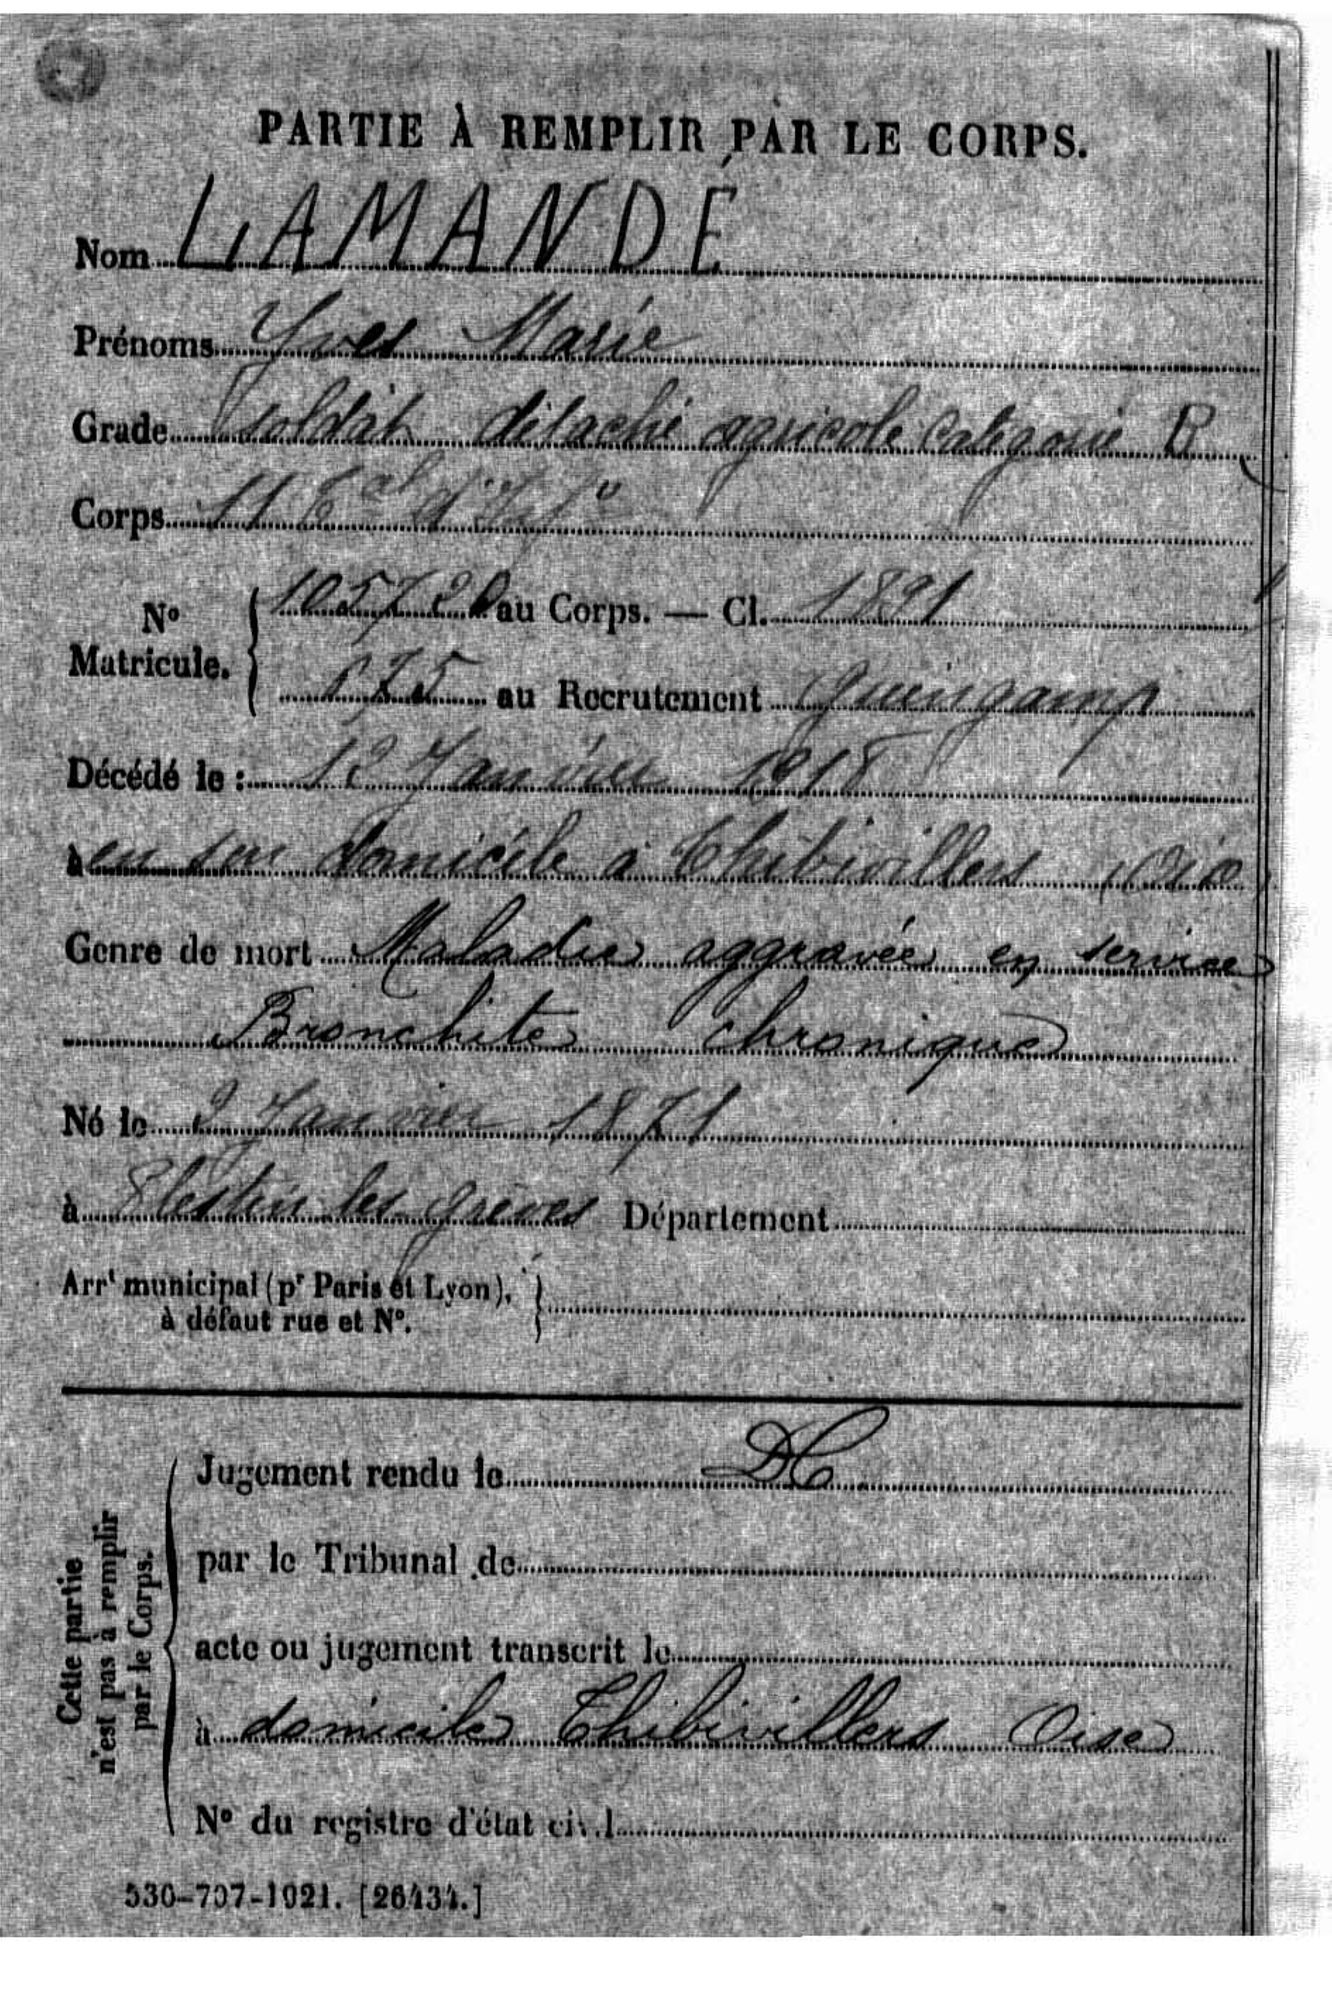 PARTIE À REMPLIR PAR LE CORPS.
Nom LAMANDÉ
Prénoms Yves Marie
Grade Soldat détaché agricole Catégorie B
Corps 11
N° Matricule. 105720 au Corps. — Cl. 1891
675 au Recrutement Guingamp
Décédé le : 12 Janvier 1918
à en son domicile à Thibivillers (Oise)
Genre de mort Maladie aggravée en service
Bronchite chronique
Né le 2 Janvier 1871
à Plestin les grèves Département
Arrt municipal (pr Paris et Lyon),
à défaut rue et N°.
Cette partie
n'est pas à remplir
par le Corps.
Jugement rendu le DC
par le Tribunal de
acte ou jugement transcrit le
à domicile Thibivillers Oise
N° du registre d'état civil
530-707-1921. [26434.]